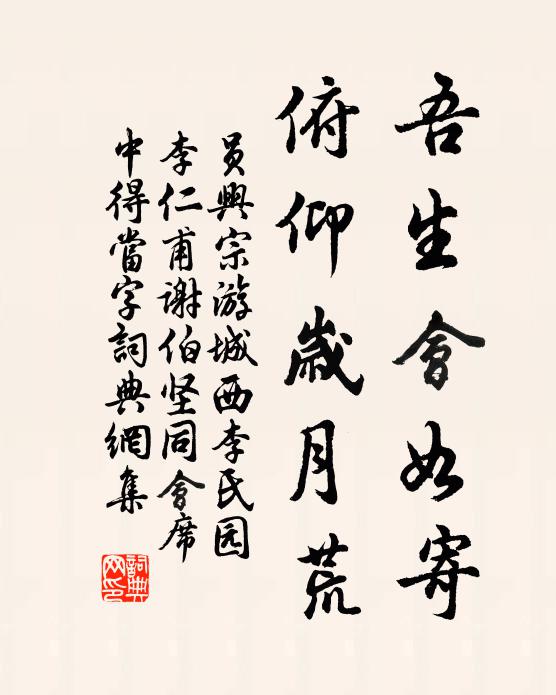 吾生會如寄
俯仰歲月荒
員興宗游城西李氏园
李仁甫谢伯坚同會席
中得當字詞典網集
詞典网印